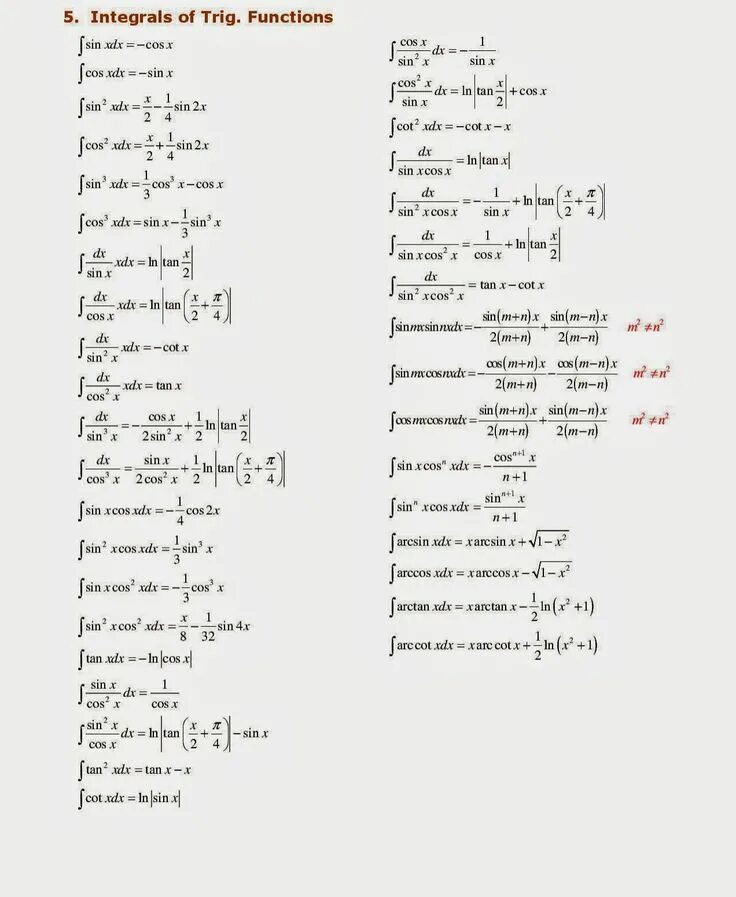 5. Integrals of Trig. Functions
∫sin xdx = −cos x
∫cos xdx = −sin x
∫sin² xdx = x/2 − 1/4 sin 2x
∫cos² xdx = x/2 + 1/4 sin 2x
∫sin³ xdx = 1/3 cos³ x − cos x
∫cos³ xdx = sin x − 1/3 sin³ x
∫dx/sin x xdx = ln|tan x/2|
∫dx/cos x xdx = ln|tan(x/2 + π/4)|
∫dx/sin² x xdx = −cot x
∫dx/cos² x xdx = tan x
∫dx/sin³ x = −cos x/2sin² x + 1/2 ln|tan x/2|
∫dx/cos³ x = sin x/2cos² x + 1/2 ln|tan(x/2 + π/4)|
∫sin x cos xdx = −1/4 cos 2x
∫sin² x cos xdx = 1/3 sin³ x
∫sin x cos² xdx = −1/3 cos³ x
∫sin² x cos² xdx = x/8 − 1/32 sin 4x
∫tan xdx = −ln|cos x|
∫sin x/cos² x dx = 1/cos x
∫sin² x/cos x dx = ln|tan(x/2 + π/4)| − sin x
∫tan² xdx = tan x − x
∫cot xdx = ln|sin x|
∫cos x/sin² x dx = −1/sin x
∫cos² x/sin x dx = ln|tan x/2| + cos x
∫cot² xdx = −cot x − x
∫dx/sin x cos x = ln|tan x|
∫dx/sin² x cos x = −1/sin x + ln|tan(x/2 + π/4)|
∫dx/sin x cos² x = 1/cos x + ln|tan x/2|
∫dx/sin² x cos² x = tan x − cot x
∫sin mx sin nxdx = −sin(m+n)x/2(m+n) + sin(m−n)x/2(m−n) m² ≠ n²
∫sin mx cos nxdx = −cos(m+n)x/2(m+n) − cos(m−n)x/2(m−n) m² ≠ n²
∫cos mx cos nxdx = sin(m+n)x/2(m+n) + sin(m−n)x/2(m−n) m² ≠ n²
∫sin x cosⁿ xdx = −cosⁿ⁺¹ x/n+1
∫sinⁿ x cos xdx = sinⁿ⁺¹ x/n+1
∫arcsin xdx = x arcsin x + √(1−x²)
∫arccos xdx = x arccos x − √(1−x²)
∫arctan xdx = x arctan x − 1/2 ln(x² +1)
∫arc cot xdx = x arc cot x + 1/2 ln(x² +1)